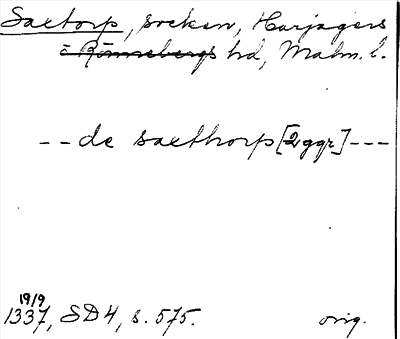 Saxtorp, socken, Harjagers
& Rönnebergs hd, Malm. l.
-- de saxthorp [2 ggr] ---
19/9
1337, SD 4, s. 575. orig.